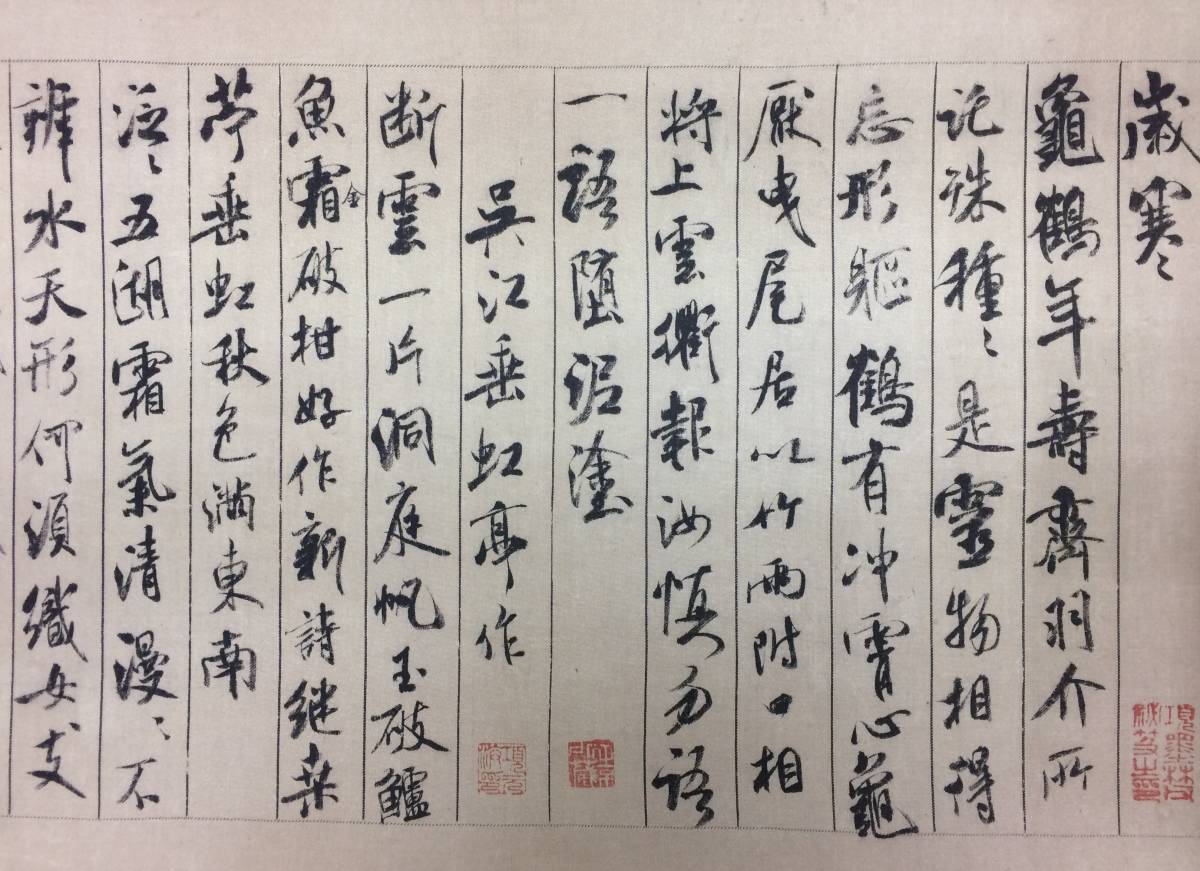 歲寒〻
龜鶴年壽齊羽介所
託殊種〻是靈物相得
忘形軀鶴有冲霄心龜
厭曳尾居以竹兩附口相
將上雲衢報汝慎勿語
一語墮泥塗
吳江垂虹亭作
断雲一片洞庭帆玉破鱸
魚霜金破柑好作新詩継桑
苧垂虹秋色滿東南
泛〻五湖霜氣清漫〻不
辨水天形何須織女支
項墨林父秘笈之印